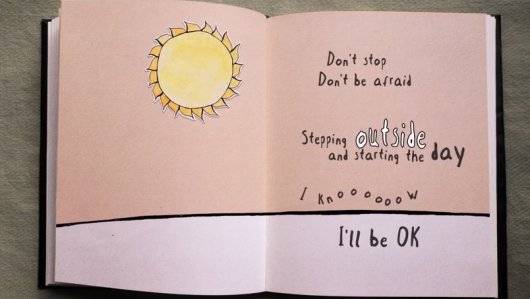 Don't stop
Don't be afraid
Stepping outside
and starting the day
I knoooooow
I'll be OK